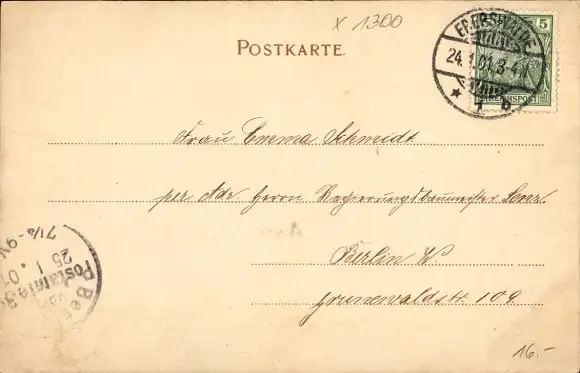 x 1300
POSTKARTE.
EBERSWALDE
24.1.01.3-4
* 1 b
5
REICHSPOST
Frau Emma Schmidt
per Adr Herrn Regierungsbaumeister Lenz.
Berlin W.
Grunewaldstr. 109
7 1/4-9
25 1. 01
Postamt
Bes
16.-